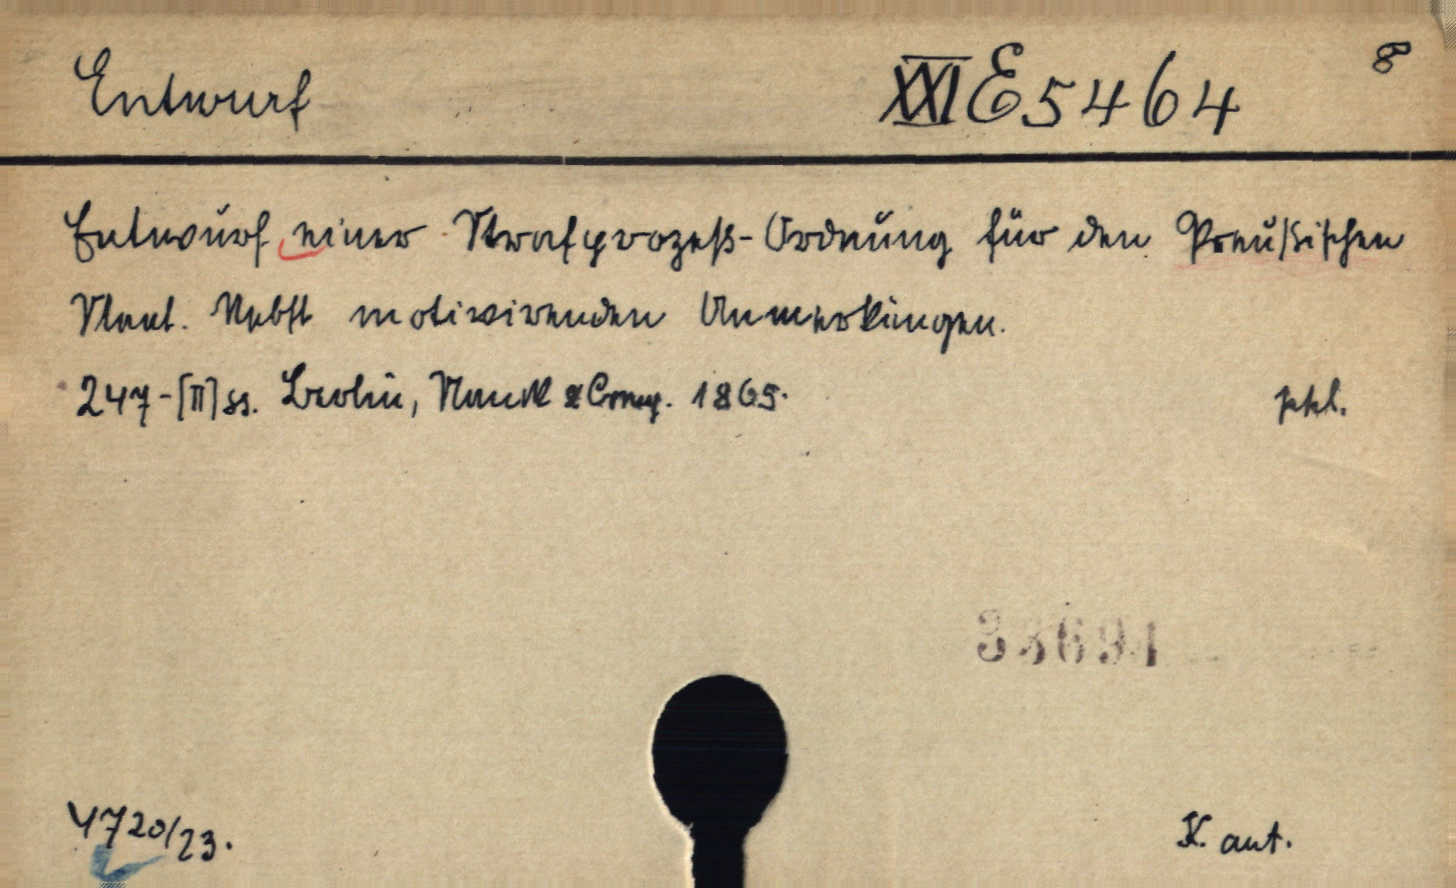 Entwurf XXI E 5464 8
Entwurf einer Strafprozeß-Ordnung für den Preußischen
Staat. Nebst motivirenden Anmerkungen.
247-[II] ss. Berlin, Nauck & Comp. 1865. ppl.
4720/23. K. aut.